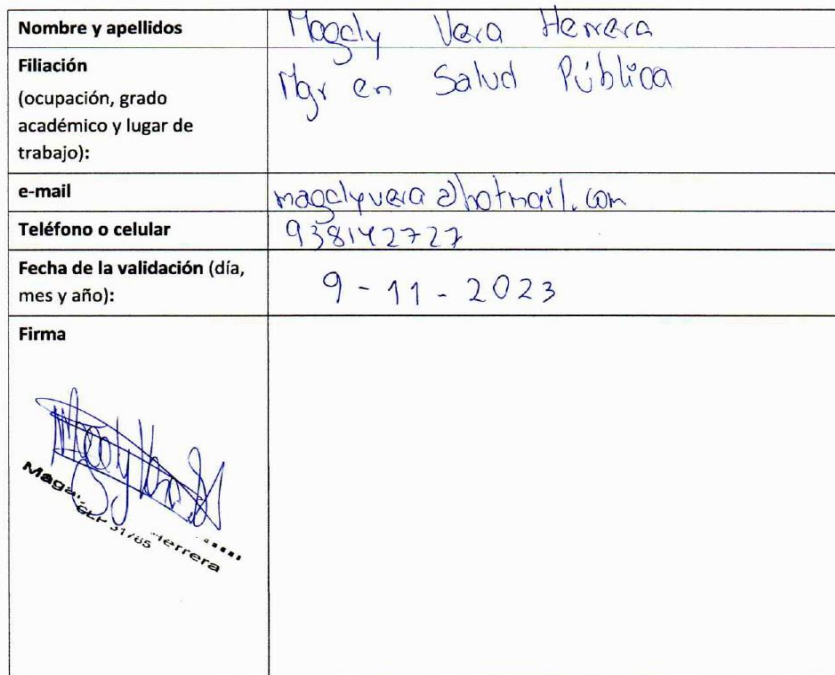 Nombre y apellidos
Magaly Vera Herrera
Filiación
(ocupación, grado
académico y lugar de
trabajo):
Mgr en Salud Pública
e-mail
magalyvera@hotmail.com
Teléfono o celular
938142727
Fecha de la validación (día,
mes y año):
9 - 11 - 2023
Firma
Herrera